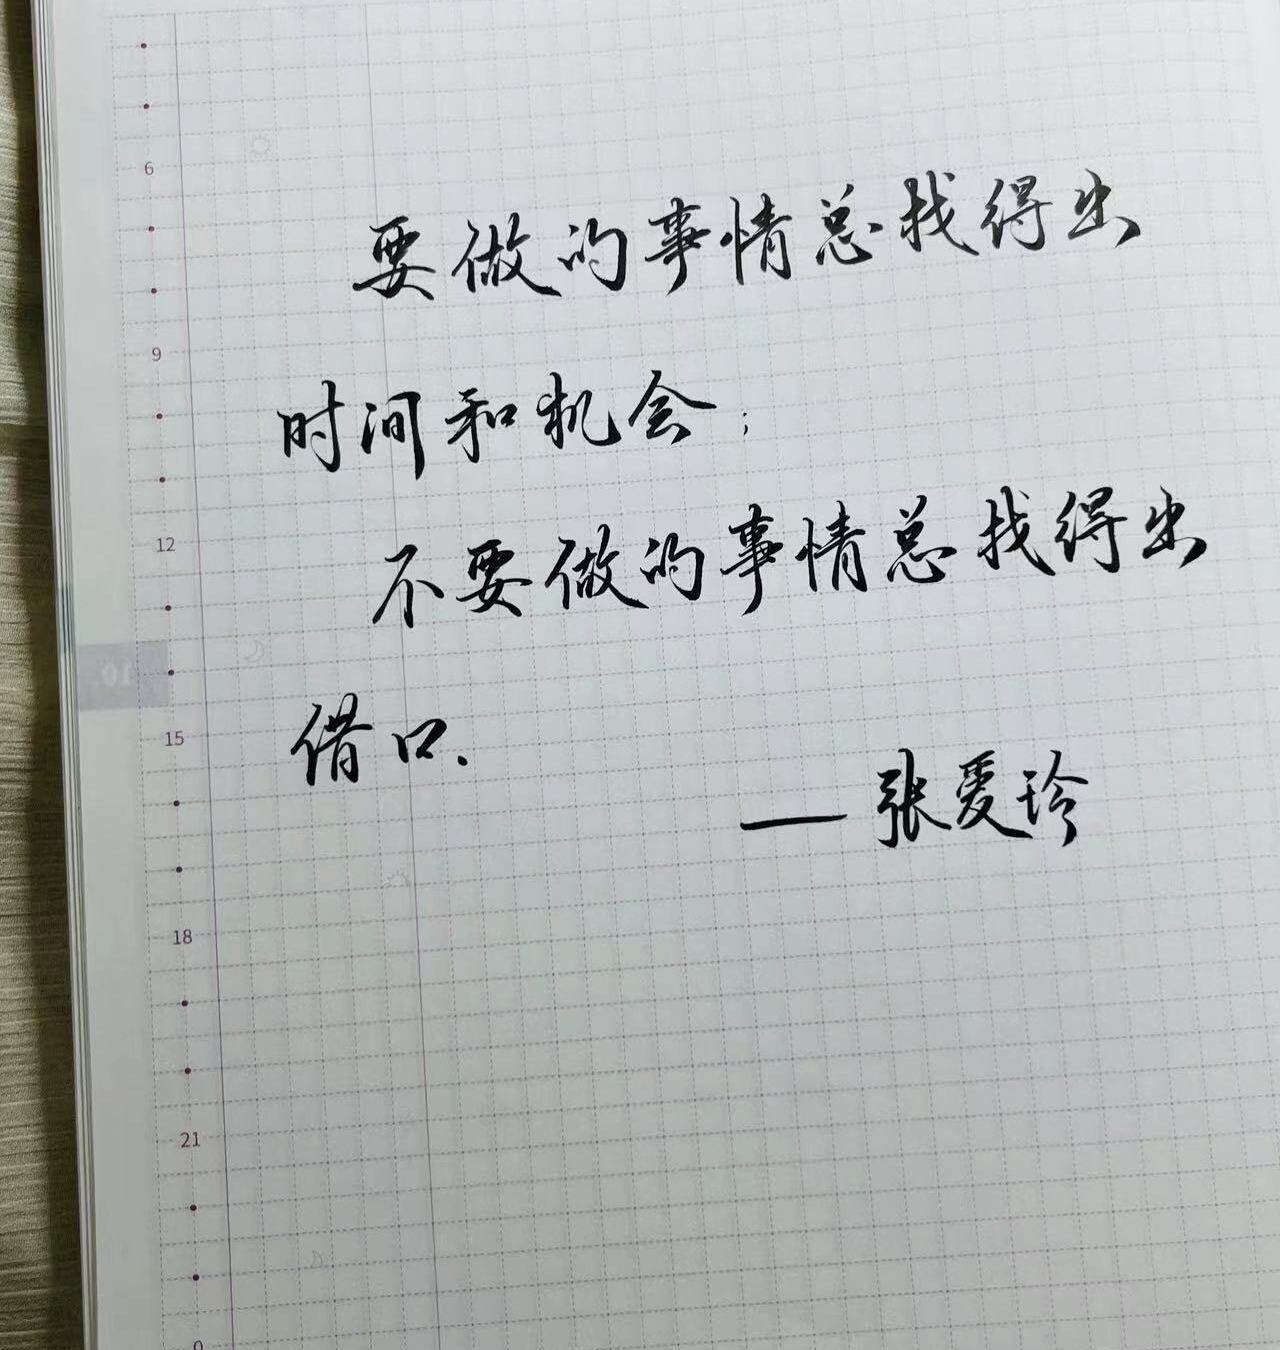 要做的事情总找得出
时间和机会；
不要做的事情总找得出
借口.
——张爱珍
6
9
12
15
18
21
0
10